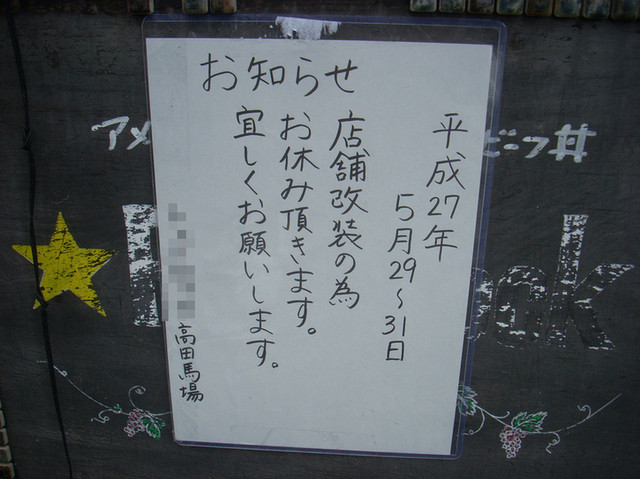 お知らせ
平成27年
5月29〜31日
店舗改装の為
お休み頂きます。
宜しくお願いします。
高田馬場
アメ
ビーフ丼
ok